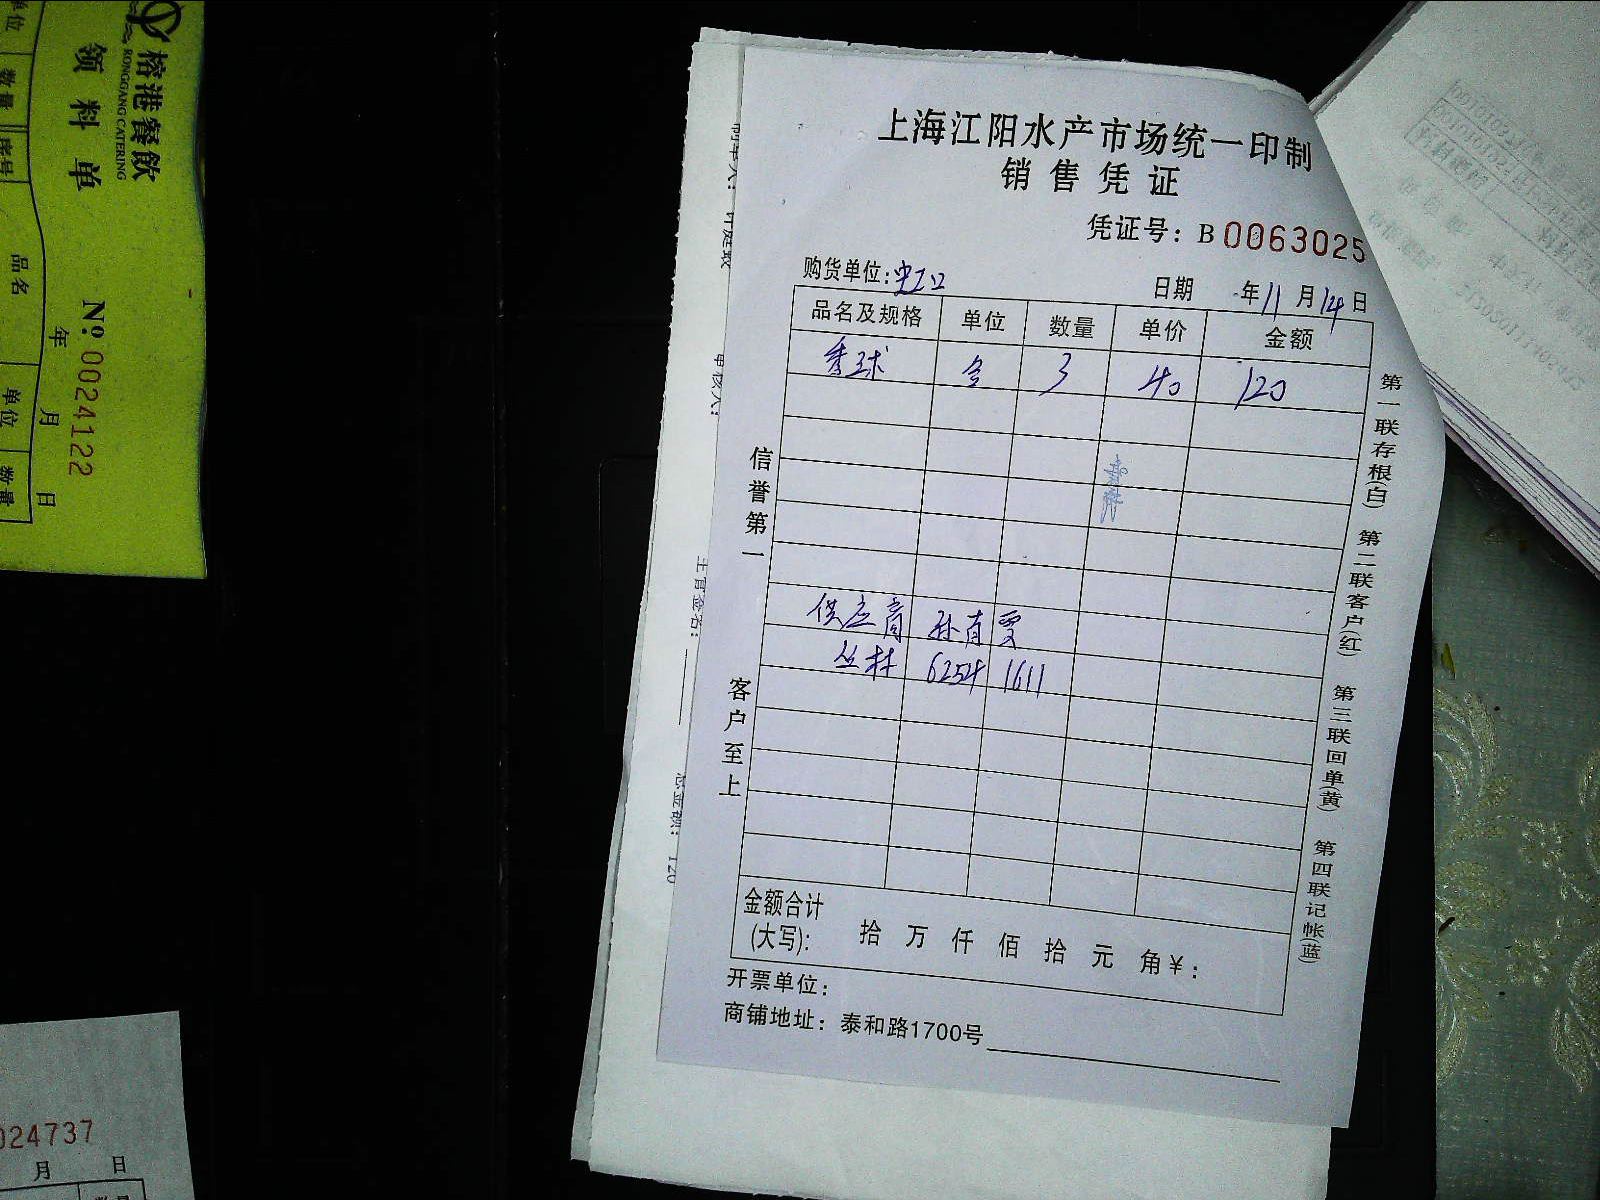 上海江阳水产市场统一印制
销售凭证
凭证号：B 0063025
购货单位：虹口
日期 年11月14日
品名及规格 单位 数量 单价 金额
3 40 120
供应商 孙
丛林 6254 1611
金额合计
(大写)： 拾 万 仟 佰 拾 元 角 ¥：
开票单位：
商铺地址：泰和路1700号
信誉第一
客户至上
第一联存根(白) 第二联客户(红) 第三联回单(黄) 第四联记帐(蓝)
主管签名：
榕港餐飲
RONGGANG CATERING
领料单
№ 0024122
年 月 日
单位 数量 序号 品名 单位 数量
024737
月 日